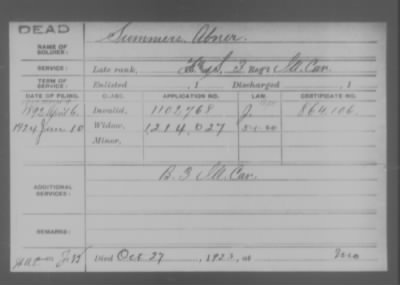 DEAD
Summers, Abner.
NAME OF
SOLDIER:
SERVICE:
Late rank, 3 Reg't Ia. Cav.
TERM OF
SERVICE:
Enlisted , 1 Discharged , 1
DATE OF FILING. CLASS. APPLICATION NO. LAW. CERTIFICATE NO.
1892 April 6. Invalid, 1102768 J. 864,106.
1924 Jan 10 Widow, 1214,027 5-1-20
Minor,
ADDITIONAL
SERVICES:
B. 3 Ia. Cav.
REMARKS:
Died Oct 27, 1923, at